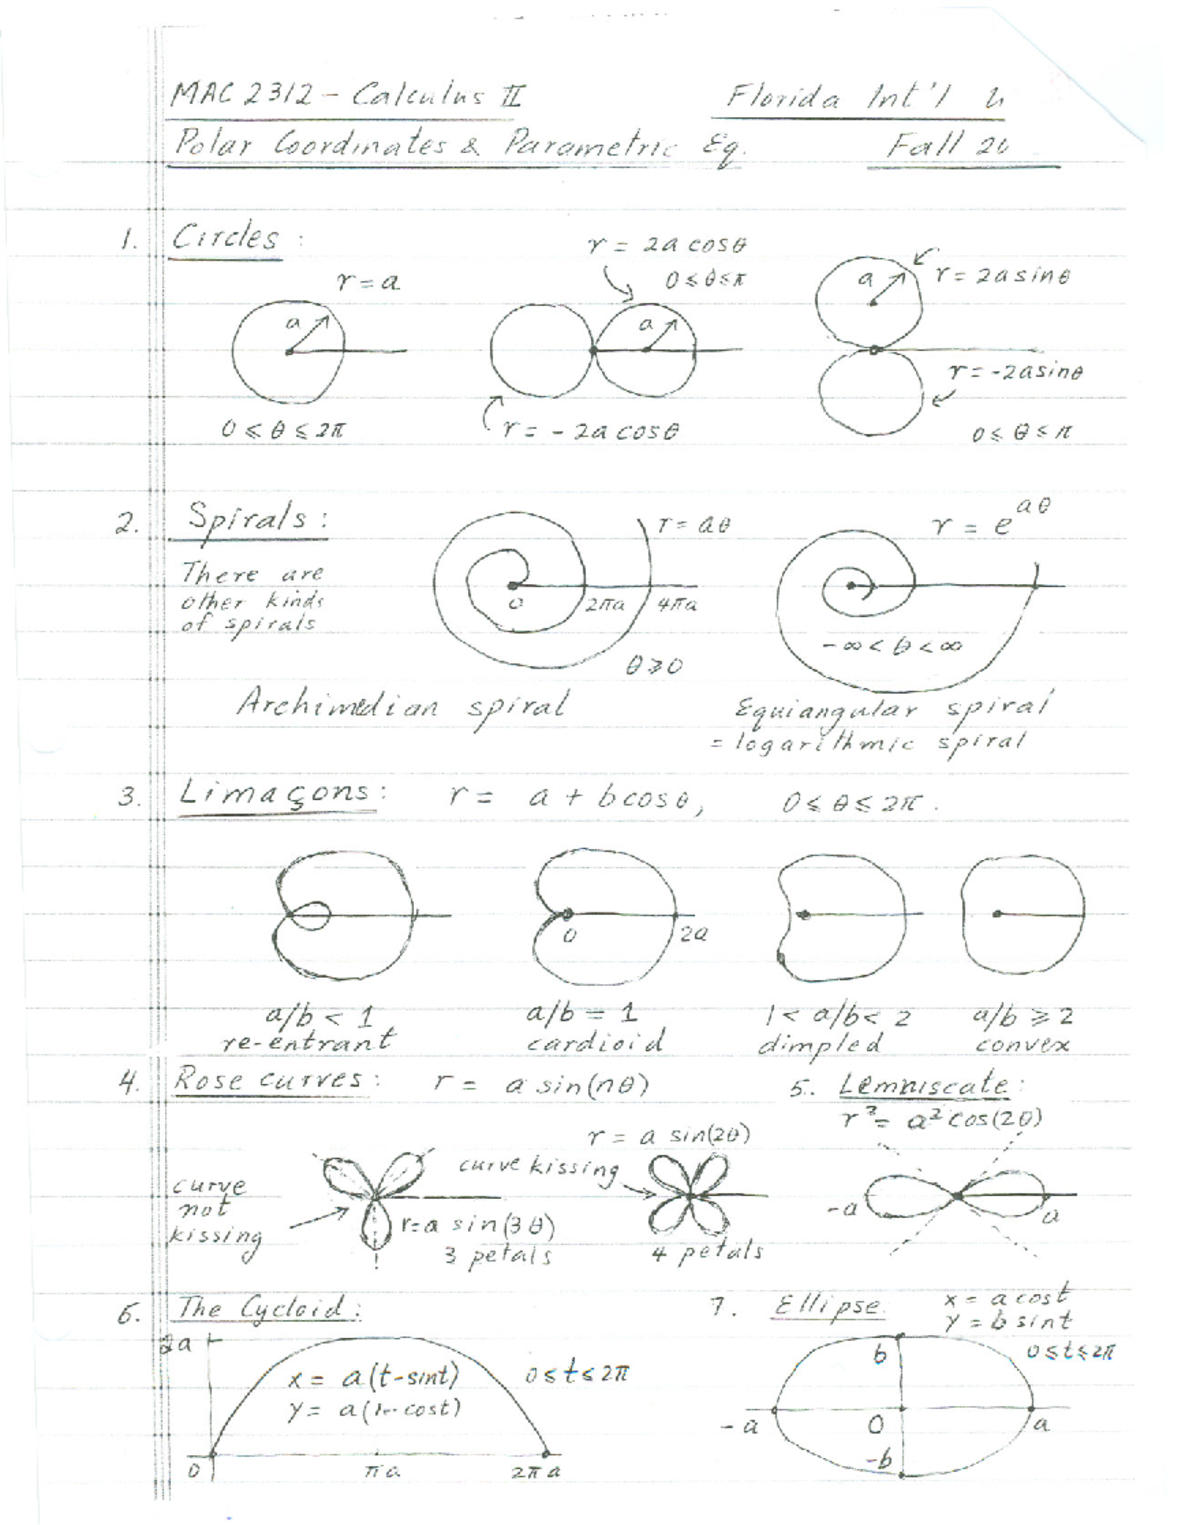 MAC 2312 - Calculus II
Florida Int'l U
Polar Coordinates & Parametric Eq.
Fall 20
1. Circles :
r = a
a
0 ≤ θ ≤ 2π
r = 2a cosθ
0 ≤ θ ≤ π
a
r = - 2a cosθ
a
r = 2a sinθ
r = -2a sinθ
0 ≤ θ ≤ π
2. Spirals :
There are
other kinds
of spirals
r = aθ
0
2πa
4πa
θ ≥ 0
Archimedian spiral
r = e^aθ
-∞ < θ < ∞
Equiangular spiral
= logarithmic spiral
3. Limaçons : r = a + b cosθ, 0 ≤ θ ≤ 2π.
0
2a
a/b < 1
re-entrant
a/b = 1
cardioid
1 < a/b < 2
dimpled
a/b ≥ 2
convex
4. Rose curves : r = a sin(nθ)
curve
not
kissing
r = a sin(3θ)
3 petals
r = a sin(2θ)
curve kissing
4 petals
5. Lemniscate :
r² = a² cos(2θ)
-a
a
6. The Cycloid :
2a
x = a(t-sint)
y = a(1-cost)
0 ≤ t ≤ 2π
0
πa
2πa
7. Ellipse
x = a cost
y = b sint
0 ≤ t ≤ 2π
b
-a
0
a
-b